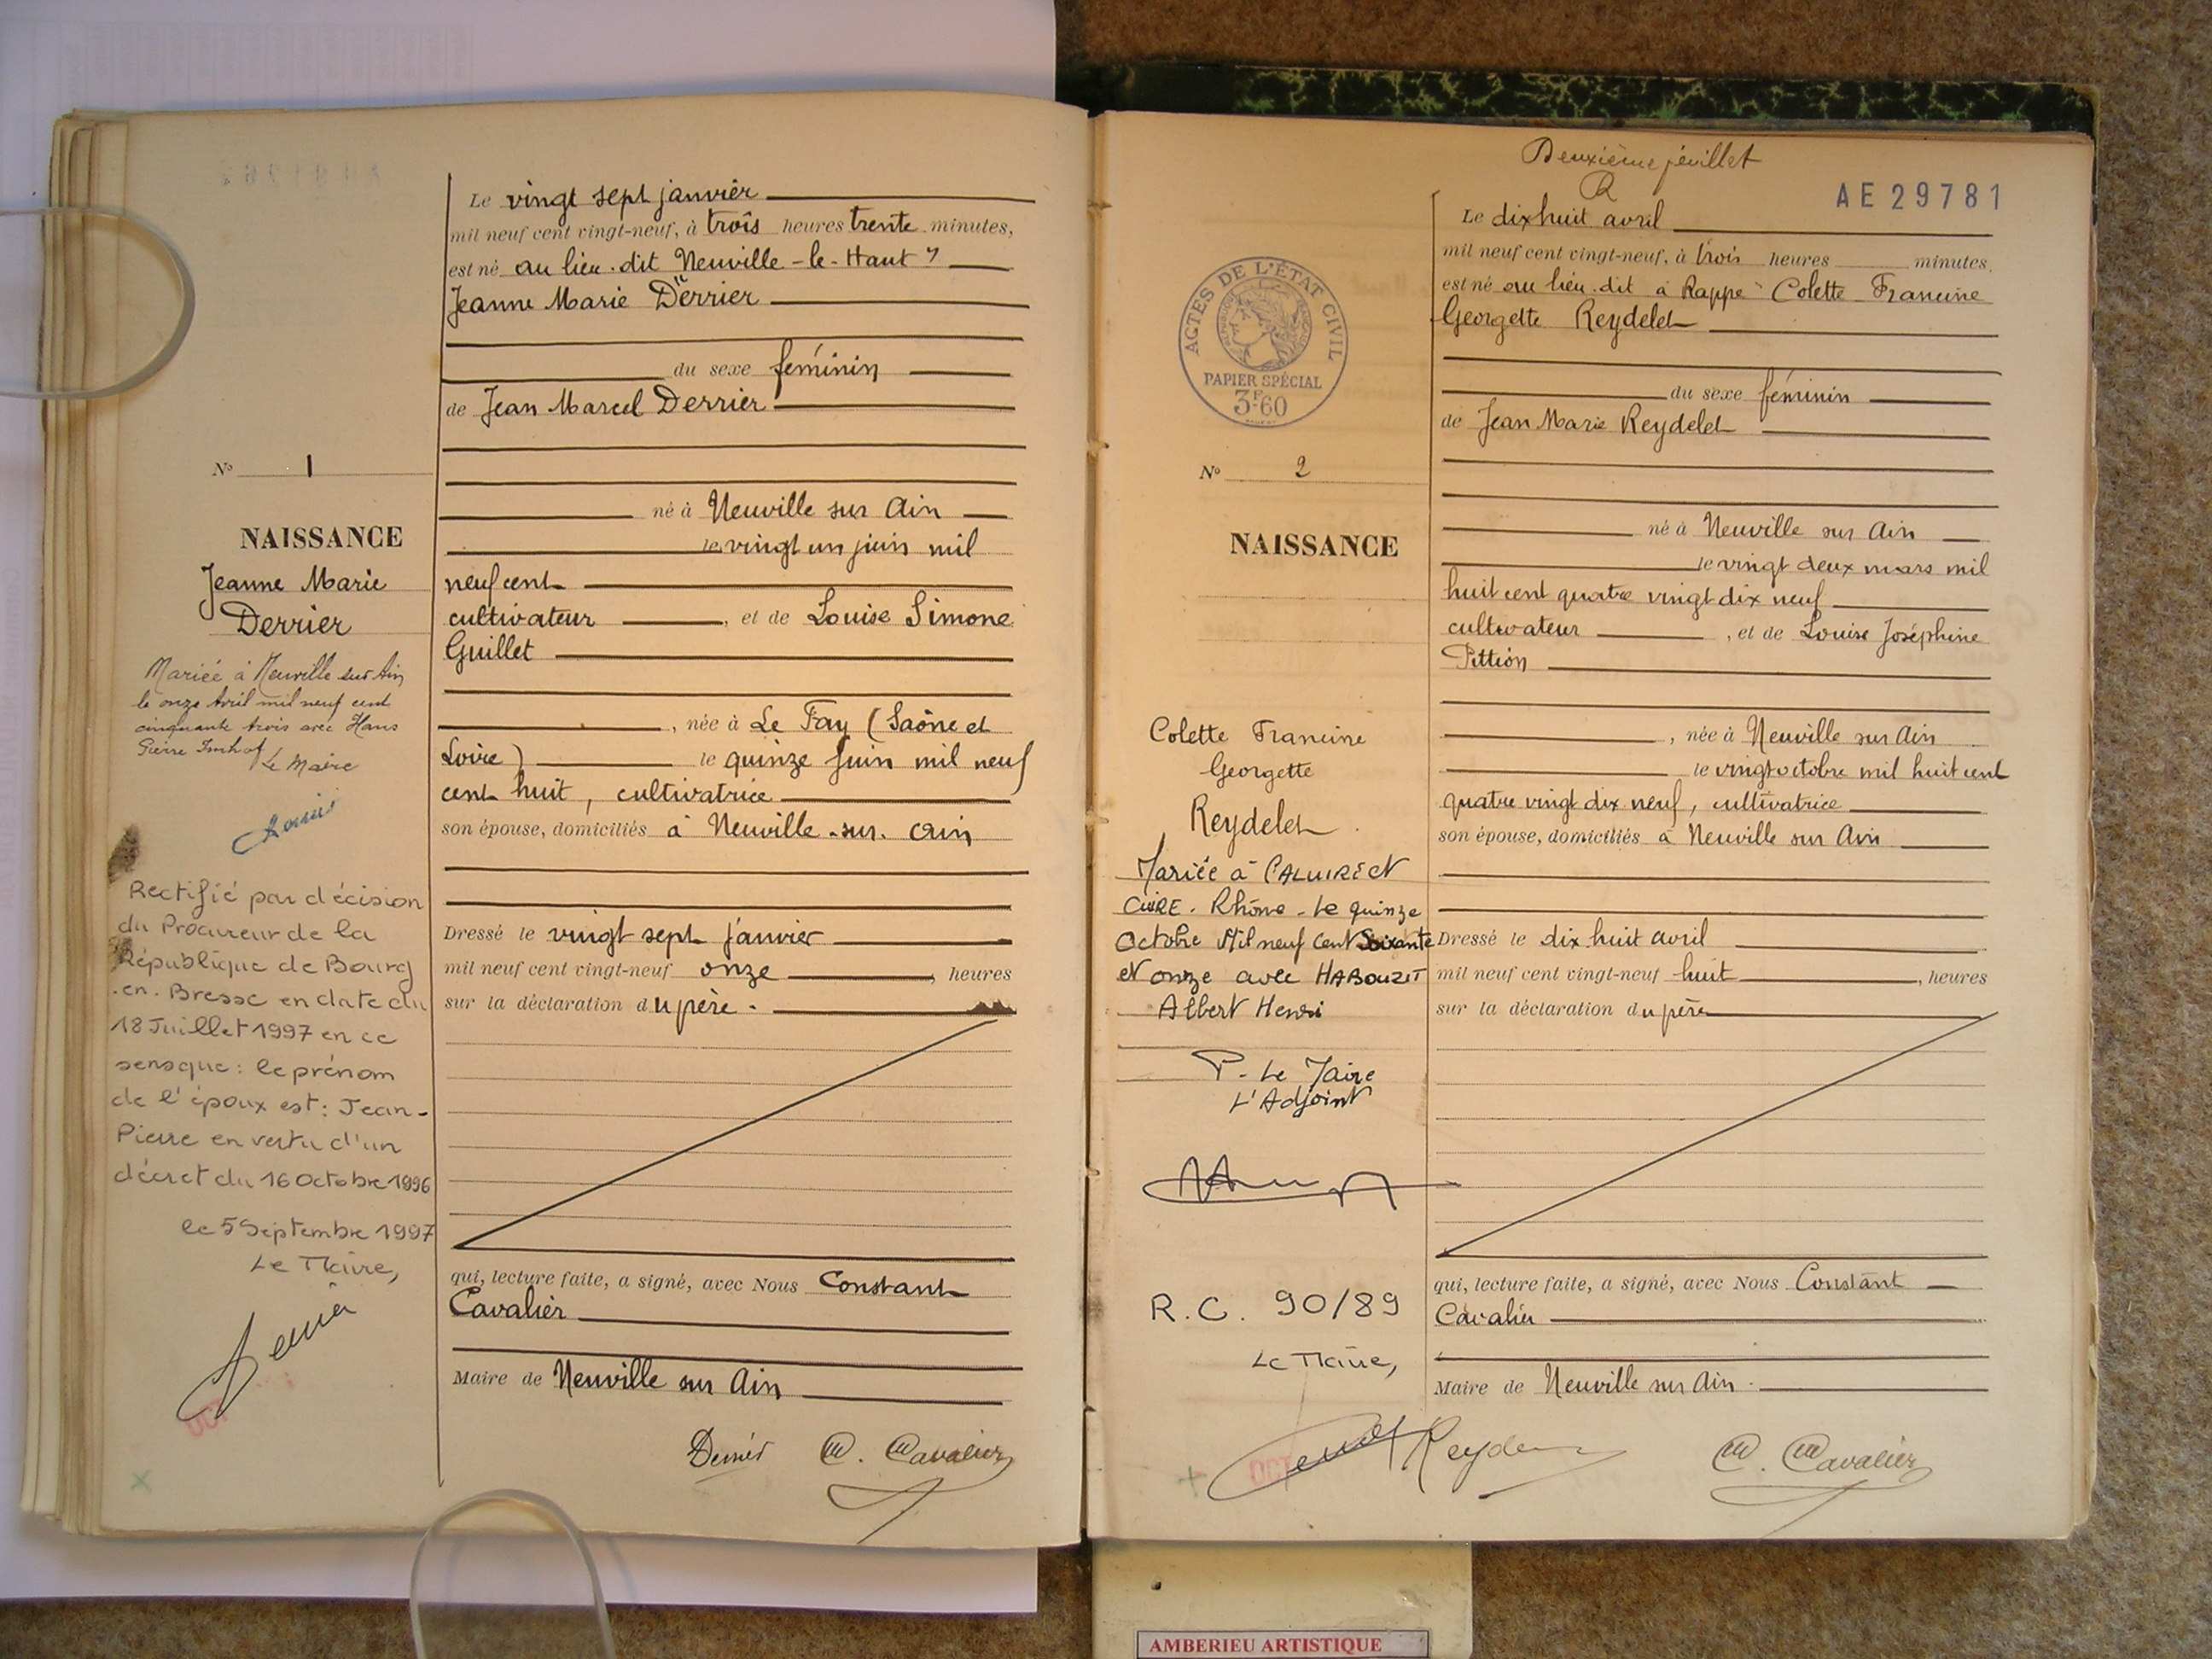 Le vingt sept janvier
mil neuf cent vingt-neuf, à trois heures trente minutes,
est né au lieu-dit Neuville-le-Haut "
Jeanne Marie Derrier
du sexe féminin
de Jean Marcel Derrier
né à Neuville sur Ain
le vingt un juin mil
neuf cent
cultivateur, et de Louise Simone
Guillet
, née à Le Fay (Saône et
Loire) le quinze juin mil neuf
cent huit, cultivatrice
son épouse, domiciliés à Neuville-sur-Ain
Dressé le vingt sept janvier
mil neuf cent vingt-neuf onze, heures
sur la déclaration du père.
qui, lecture faite, a signé, avec Nous Constant
Cavalier
Maire de Neuville sur Ain
Derrier C. Cavalier
N° 1
NAISSANCE
Jeanne Marie
Derrier
Mariée à Neuville sur Ain
le onze Avril mil neuf cent
cinquante trois avec Hans
Pierre Imhof
Le Maire
Rectifié par décision
du Procureur de la
République de Bourg
-en-Bresse en date du
18 Juillet 1997 en ce
sens que : le prénom
de l'époux est : Jean-
Pierre en vertu d'un
décret du 16 Octobre 1996
le 5 Septembre 1997
Le Maire,
OCT
Deuxième feuillet
AE 29781
Le dix huit avril
mil neuf cent vingt-neuf, à trois heures minutes,
est né au lieu-dit à Rappe " Colette Francine
Georgette Reydelet
du sexe féminin
de Jean Marie Reydelet
né à Neuville sur Ain
le vingt deux mars mil
huit cent quatre vingt dix neuf
cultivateur, et de Louise Joséphine
Pittion
, née à Neuville sur Ain
le vingt octobre mil huit cent
quatre vingt dix neuf, cultivatrice
son épouse, domiciliés à Neuville sur Ain
Dressé le dix huit avril
mil neuf cent vingt-neuf huit, heures
sur la déclaration du père
qui, lecture faite, a signé, avec Nous Constant
Cavalier
Maire de Neuville sur Ain.
C. Cavalier
ACTES DE L'ÉTAT CIVIL
PAPIER SPÉCIAL
3F60
N° 2
NAISSANCE
Colette Francine
Georgette
Reydelet
Mariée à CALUIRE et
CUIRE. Rhône - Le quinze
Octobre Mil neuf Cent Soixante
et onze avec HABOUZIT
Albert Henri
P. Le Maire
L'Adjoint
R.C. 90/89
Le Maire,
OCT
AMBERIEU ARTISTIQUE